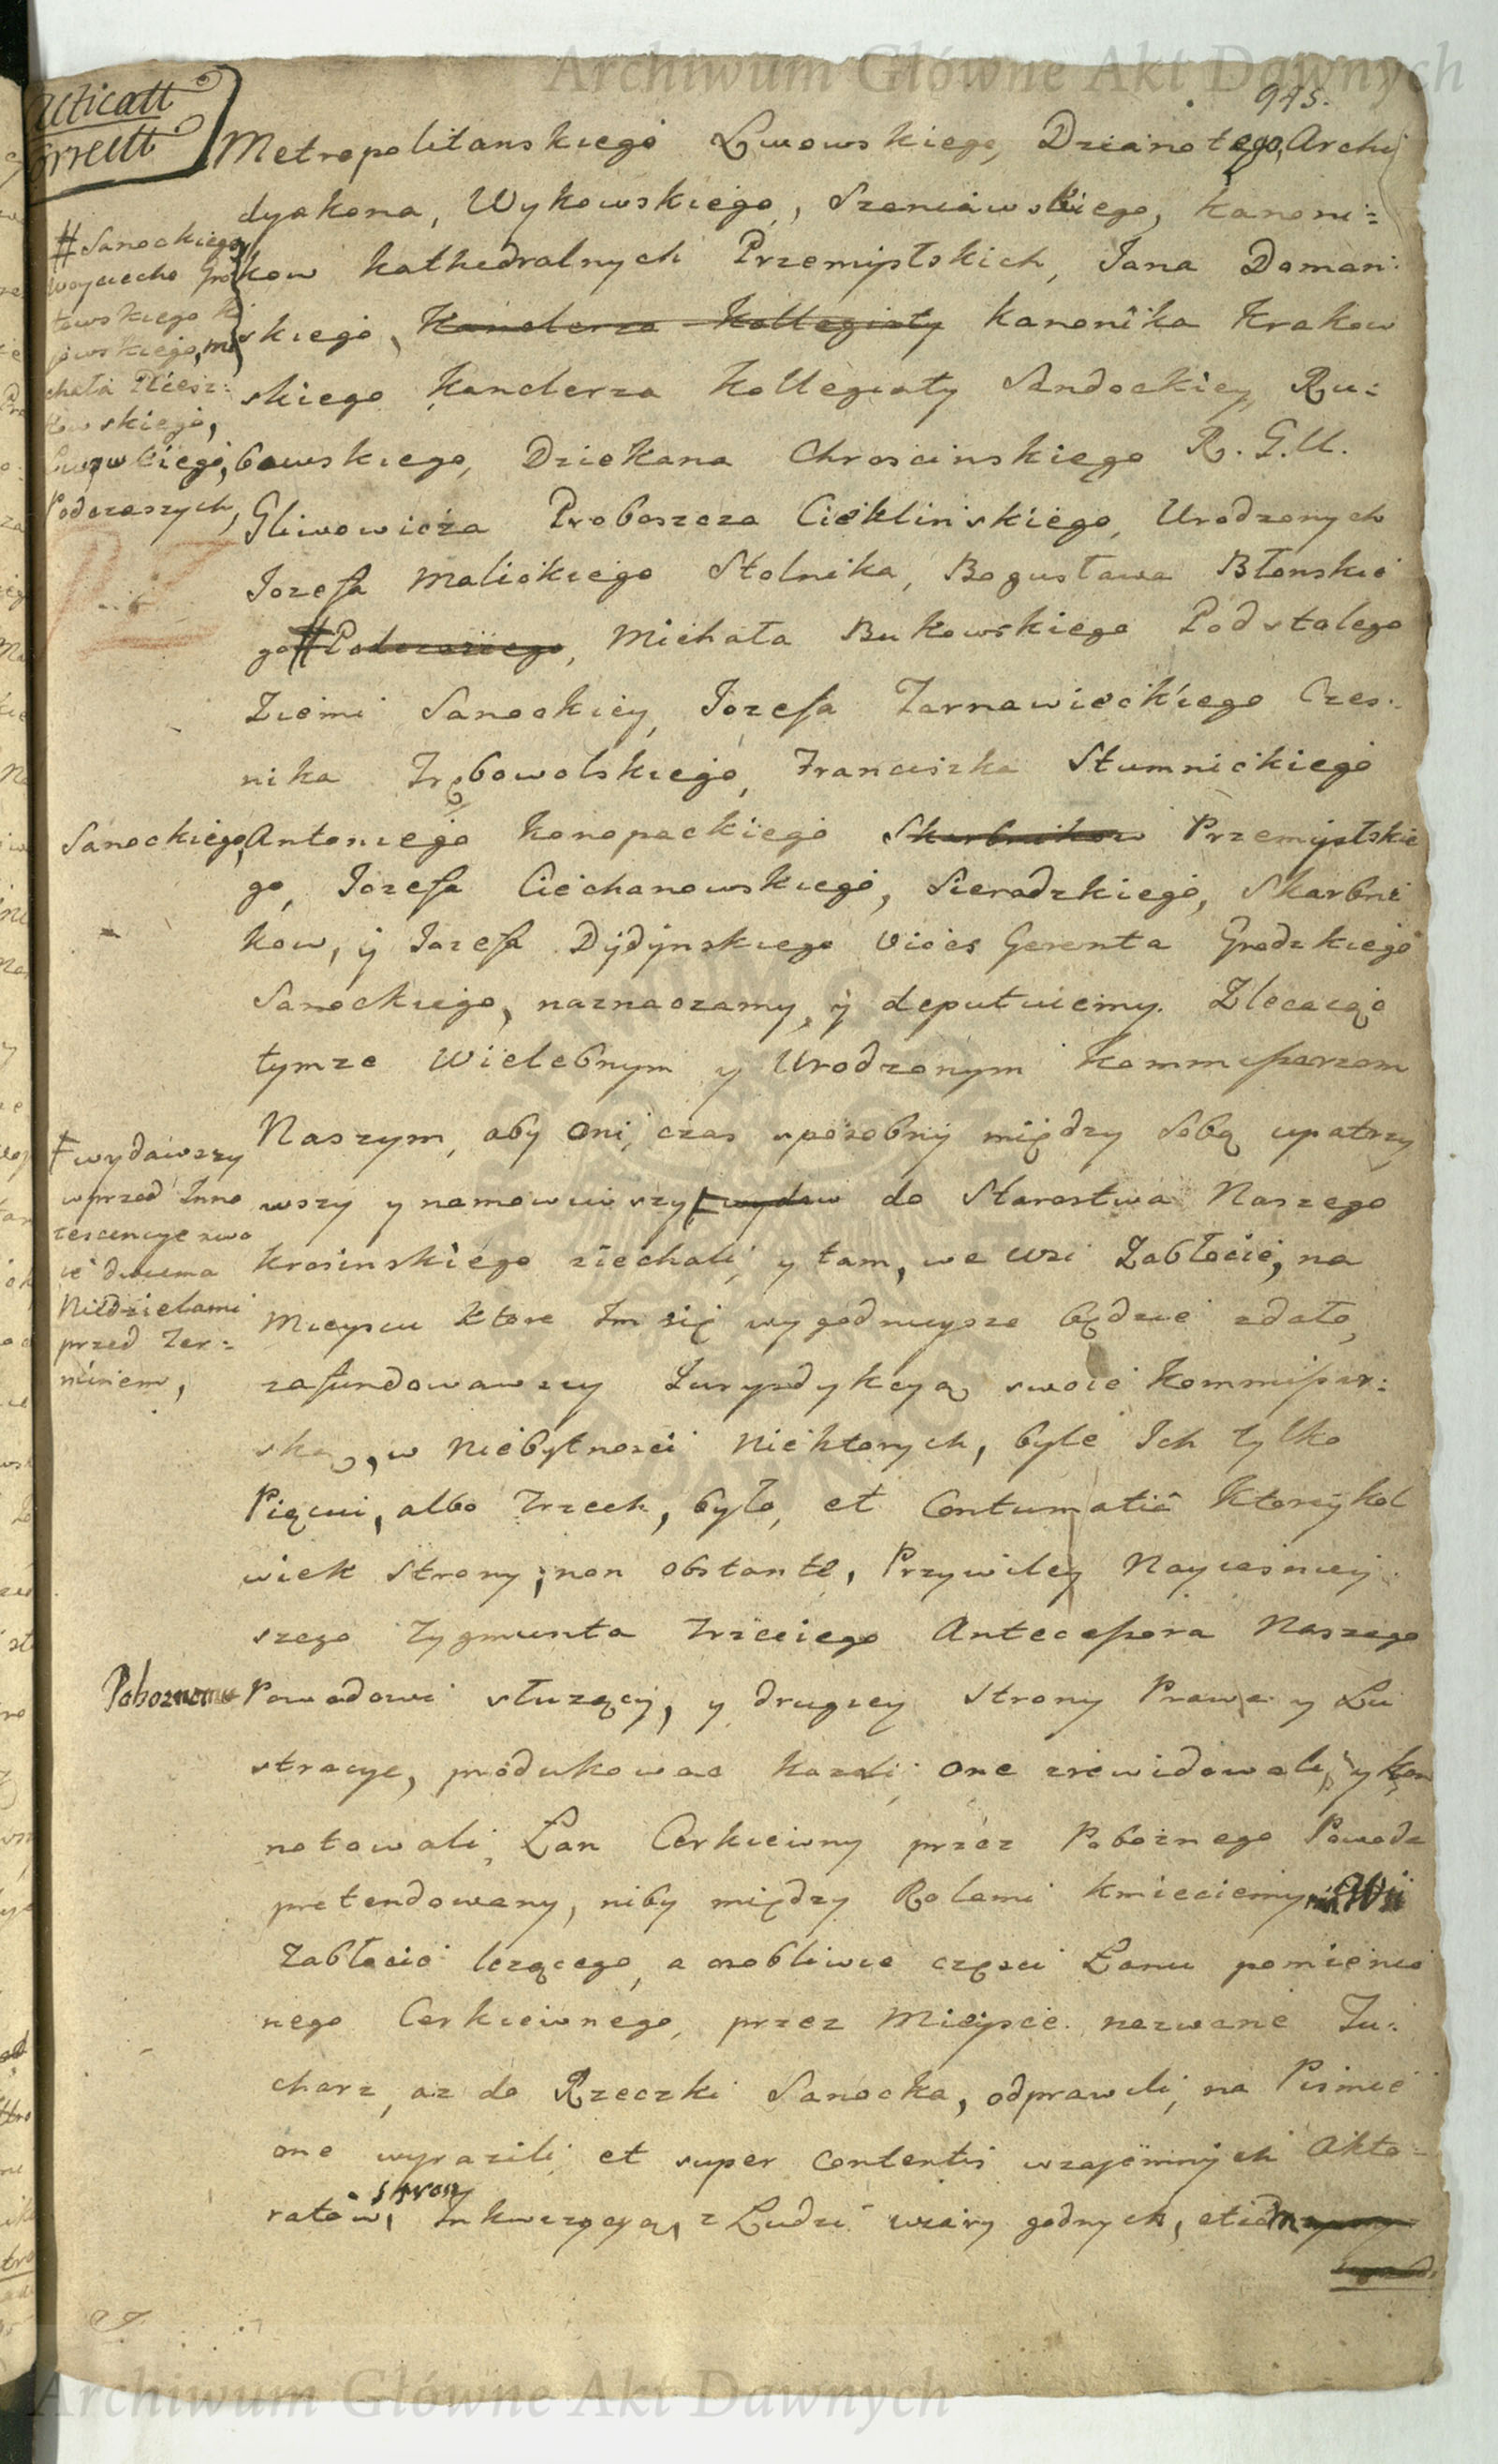 Archiwum Główne Akt Dawnych
945.
Metropolitanskiego Lwowskiego, Dzianotego, Archi
dyakona, Wykowskiego, Szeniawskiego, Kanoni=
kow Kathedralnych Przemyslskich, Jana Doman:
skiego, Kanclerza Kollegiaty Kanonika Krakow
skiego Kanclerza Kollegiaty Sandockiey, Ru:
bowskiego, Dziekana Chroscinskiego R. G. U.
Gliwowicza Proboszcza Cieklinskiego, Urodzonych
Jozefa Malickiego Stolnika, Bogusława Błonskie
go # Podczaszego, Michała Bukowskiego Podstolego
Ziemi Sanockiey, Jozefa Tarnawieckiego Czes:
nika Trębowolskiego, Franciszka Słumnickiego
Antoniego Konopackiego Skarbnikow Przemyslskie
go, Jozefa Ciechanowskiego, Sieradzkiego, Skarbni
kow, y Jozefa Dydynskiego Vices Gerenta Grodzkiego
Sanockiego, naznaczamy, y deputuiemy. Zlecaiąc
tymze Wielebnym y Urodzonym Kommissarzom
Naszym, aby oni, czas sposobny między Sobą upatrzy
wszy y namowiwszy wydaw do Starostwa Naszego
Krosinskiego ziechali, y tam, we Wsi Zabłocie, na
Mieyscu ktore Im się wygodnieysze będzie zdało,
zafundowawszy Jurysdykcyą swoie Kommissar:
ską, w niebytnosci niektorych, byle Ich tylko
Pięciu, albo Trzech, było, et Contumatiâ ktoreykol
wiek Strony, non obstante, Przywiley Nayiasniey
szego Zygmunta Trzeciego Antecessora Naszego
Powodowi słuzący, y drugiey Strony Prawa y Lu
stracye, produkowac kazali, one zrewidowali, y kon
notowali, Łan Cerkiewny przez Poboznego Powoda
pretendowany, niby między Rolami Kmieciemi Wsi
Zabłocie lezącego, a osobliwie części Łanu pomienio
nego Cerkiewnego, przez Mieysce nazwane Tu:
charz, az do Rzeczki Sanocka, odprawili, na Pismie
one wyrazili et super Contentis wzajemnych Akto=
ratów, stron Inkwizycyą, z Ludzi wiary godnych, etiam
# Sanockiego
Woyciecha
Podczaszych,
Sanockiego,
wydawszy
wprzod Inno
tescencye swo
ie dwuma
Niedzielami
przed Ter=
minem,
Poboznemu
Archiwum Główne Akt Dawnych